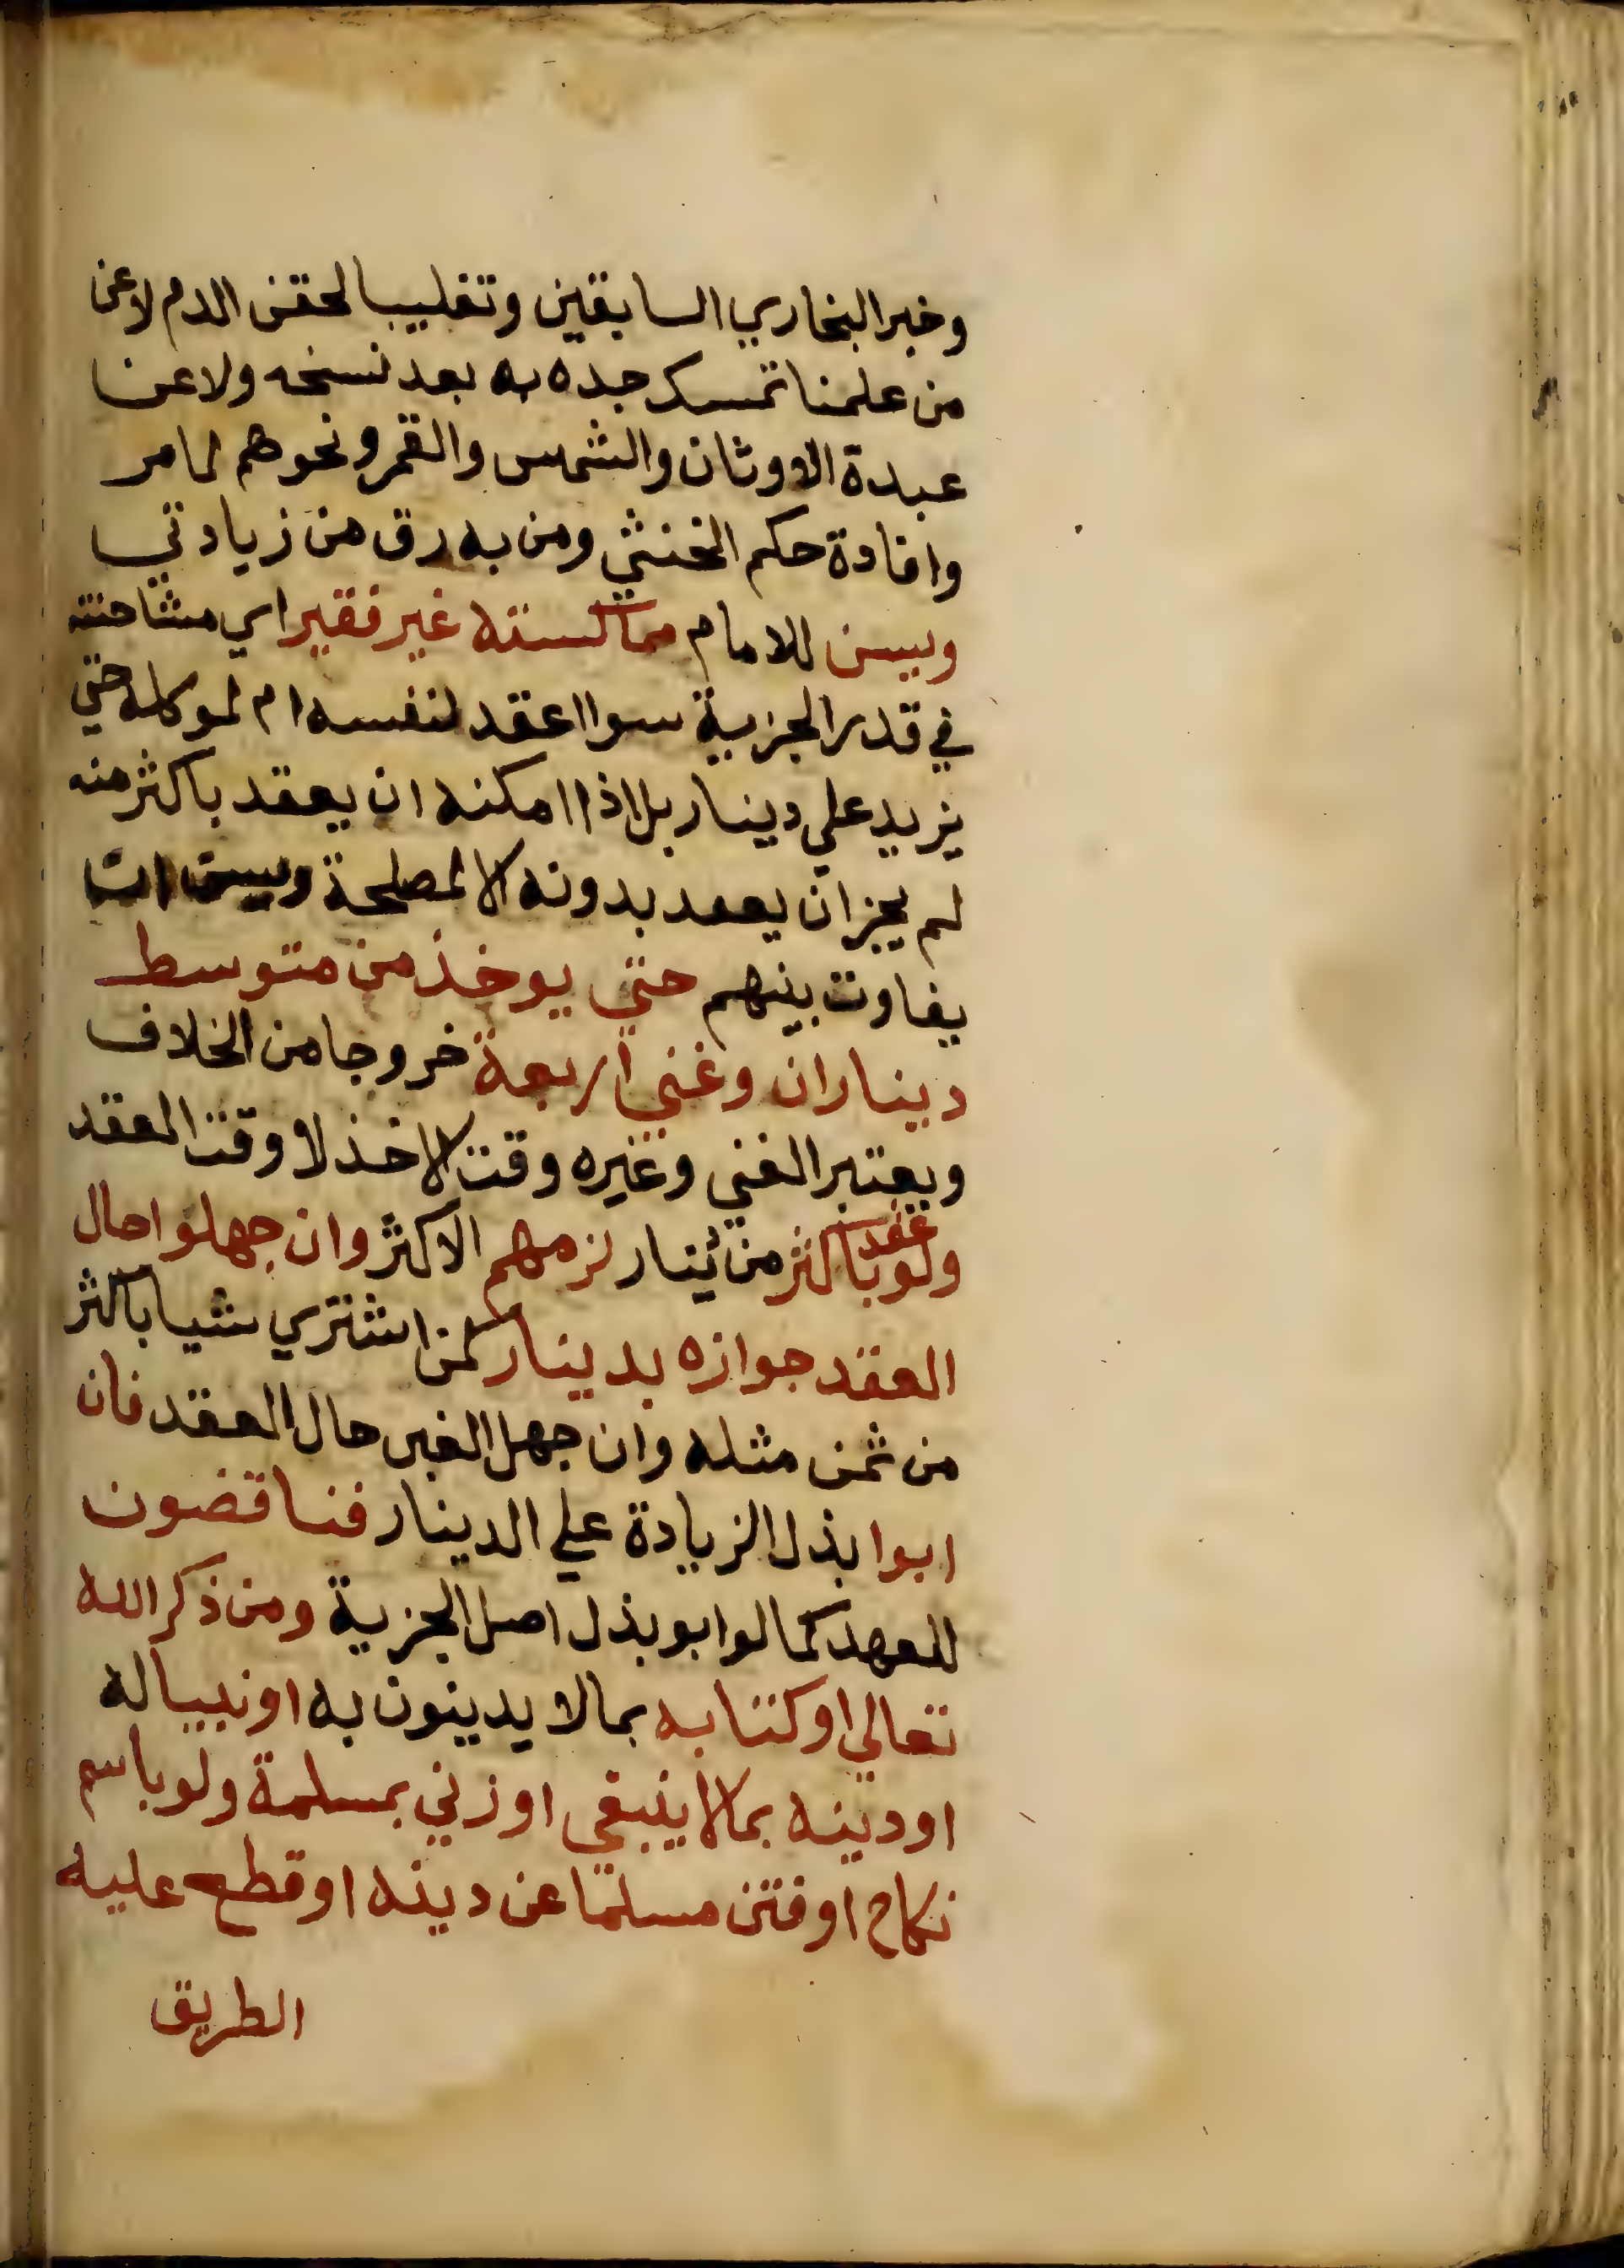 وخبر البخاري السابقين وتغليبا لحقن الدم لا عن
من علمنا تمسك جده به بعد نسخه ولا عن
عبدة الاوثان والشمس والقمر ونحوهم لما مر
وافادة حكم الخنثي ومن به رق من زيادتي
ويسن للامام مماكسته غير فقير اي مشاحته
في قدر الجزية سوا اعقد لنفسه ام لموكله حتي
يزيد علي دينار بل اذا امكنه ان يعقد باكثر منه
لم يجز ان يعقد بدونه الا لمصلحة ويسن ان
يفاوت بينهم حتي يوخذ من متوسط
ديناران وغني اربعة خروجا من الخلاف
ويعتبر الغني وغيره وقت الاخذ لا وقت العقد
ولو عقد باكثر من دينار لزمهم الاكثر وان جهلوا حال
العقد جوازه بدينار كمن اشتري شيا باكثر
من ثمن مثله وان جهل الغبن حال العقد فان
ابوا بذل الزيادة علي الدينار فناقضون
للعهد كما لو ابو بذل اصل الجزية ومن ذكر الله
تعالي او كتابه بما لا يدينون به او نبيا له
او دينه بما لا ينبغي او زني بمسلمة ولو باسم
نكاح او فتن مسلما عن دينه او قطع عليه
الطريق